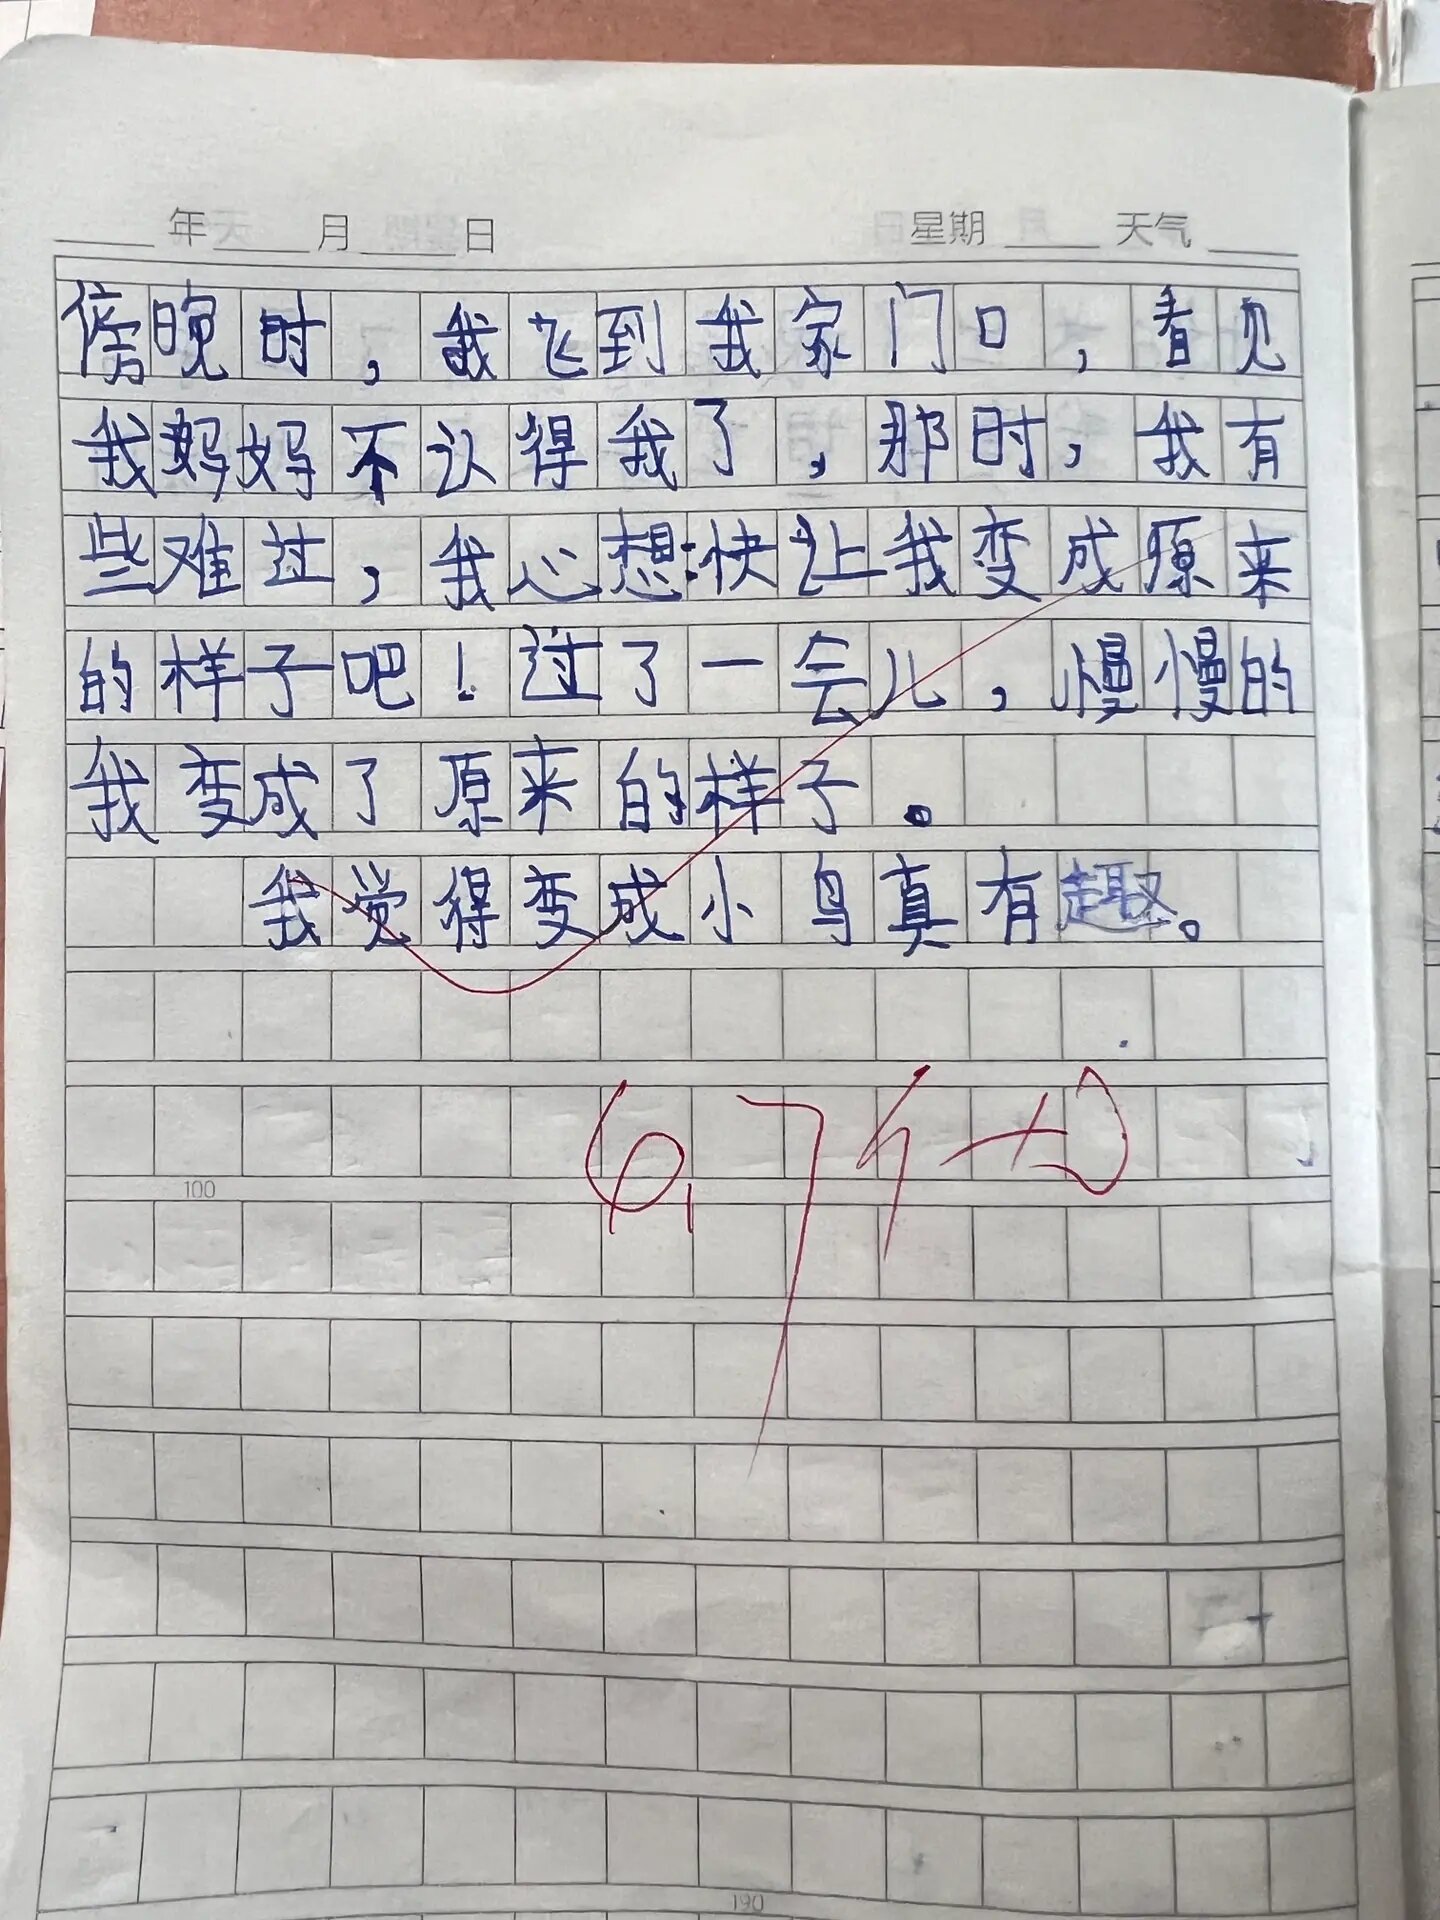 年 月 日 星期 天气
傍晚时，我飞到我家门口，看见
我妈妈不认得我了，那时，我有
些难过，我心想：快让我变成原来
的样子吧！过了一会儿，慢慢的
我变成了原来的样子。
我觉得变成小鸟真有趣。
100
190